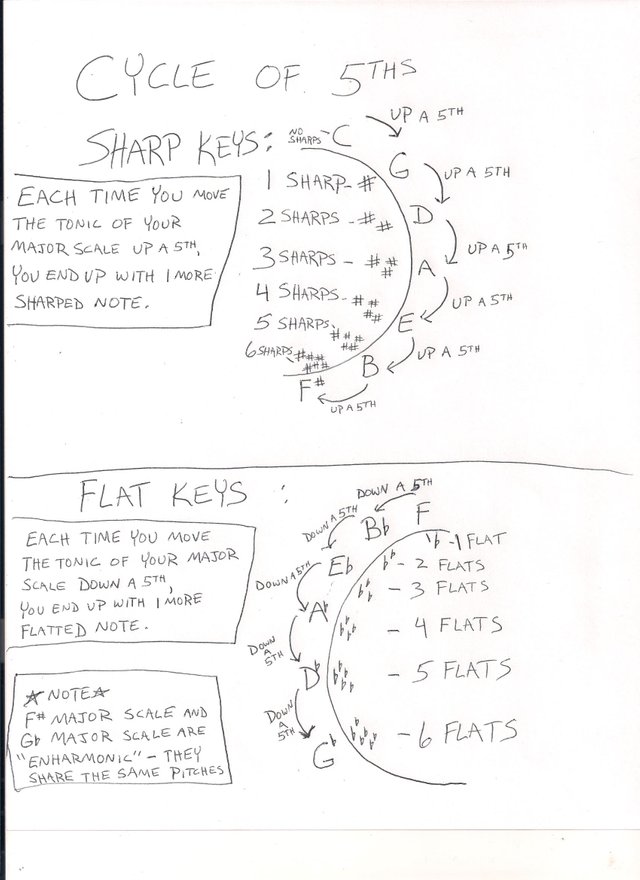 CYCLE OF 5THS
SHARP KEYS:
NO
SHARPS
C
UP A 5TH
G
UP A 5TH
D
UP A 5TH
A
UP A 5TH
E
UP A 5TH
B
UP A 5TH
F#
1 SHARP - #
2 SHARPS - # #
3 SHARPS - # # #
4 SHARPS - # # # #
5 SHARPS - # # # # #
6 SHARPS - # # # # # #
EACH TIME YOU MOVE
THE TONIC OF YOUR
MAJOR SCALE UP A 5TH,
YOU END UP WITH 1 MORE
SHARPED NOTE.
FLAT KEYS :
EACH TIME YOU MOVE
THE TONIC OF YOUR MAJOR
SCALE DOWN A 5TH,
YOU END UP WITH 1 MORE
FLATTED NOTE.
F
DOWN A 5TH
B♭
DOWN A 5TH
E♭
DOWN A 5TH
A♭
DOWN
A
5TH
D♭
DOWN
A
5TH
G♭
♭ - 1 FLAT
♭♭ - 2 FLATS
♭♭♭ - 3 FLATS
♭♭♭♭ - 4 FLATS
♭♭♭♭♭ - 5 FLATS
♭♭♭♭♭♭ - 6 FLATS
☆ NOTE ☆
F# MAJOR SCALE AND
G♭ MAJOR SCALE ARE
"ENHARMONIC" - THEY
SHARE THE SAME PITCHES